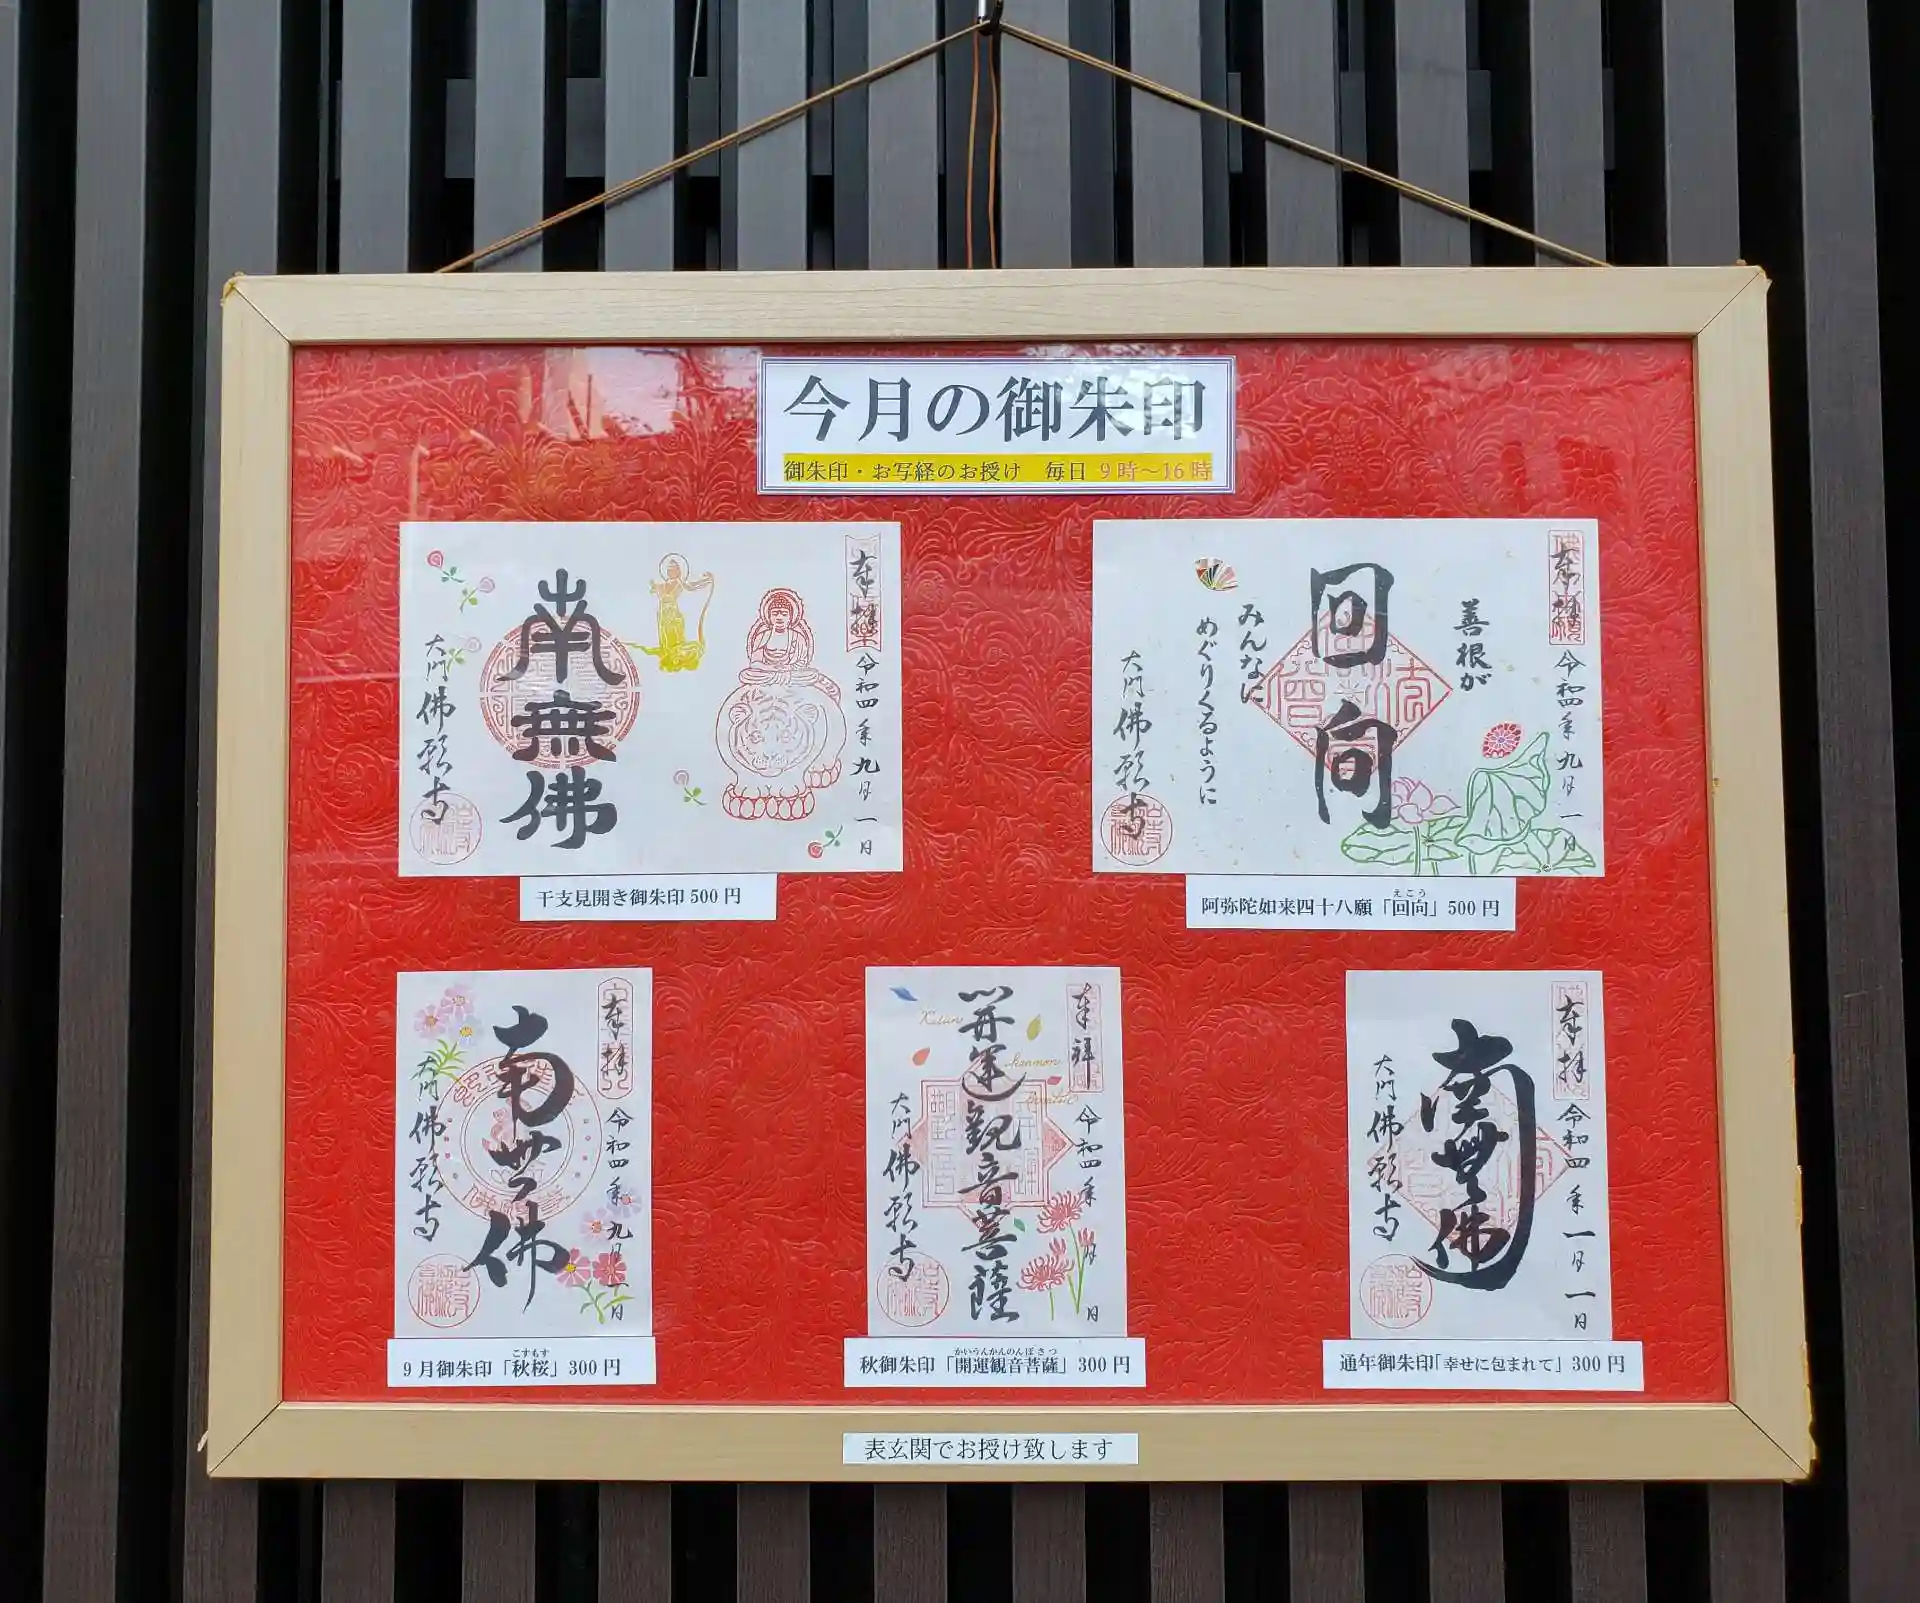 今月の御朱印
御朱印・お写経のお授け 毎日 9時～16時
奉拝
令和四年九月一日
南無佛
大門 佛願寺
干支見開き御朱印500円
奉拝
令和四年九月一日
善根が
回向
みんなに
めぐりくるように
大門 佛願寺
えこう
阿弥陀如来四十八願「回向」500円
奉拝
令和四年九月一日
南無佛
大門 佛願寺
こすもす
9月御朱印「秋桜」300円
奉拝
令和四年 月 日
Kaiun
kannon
開運観音菩薩
大門 佛願寺
かいうんかんのんぼさつ
秋御朱印「開運観音菩薩」300円
奉拝
令和四年一月一日
南無佛
大門 佛願寺
通年御朱印「幸せに包まれて」300円
表玄関でお授け致します